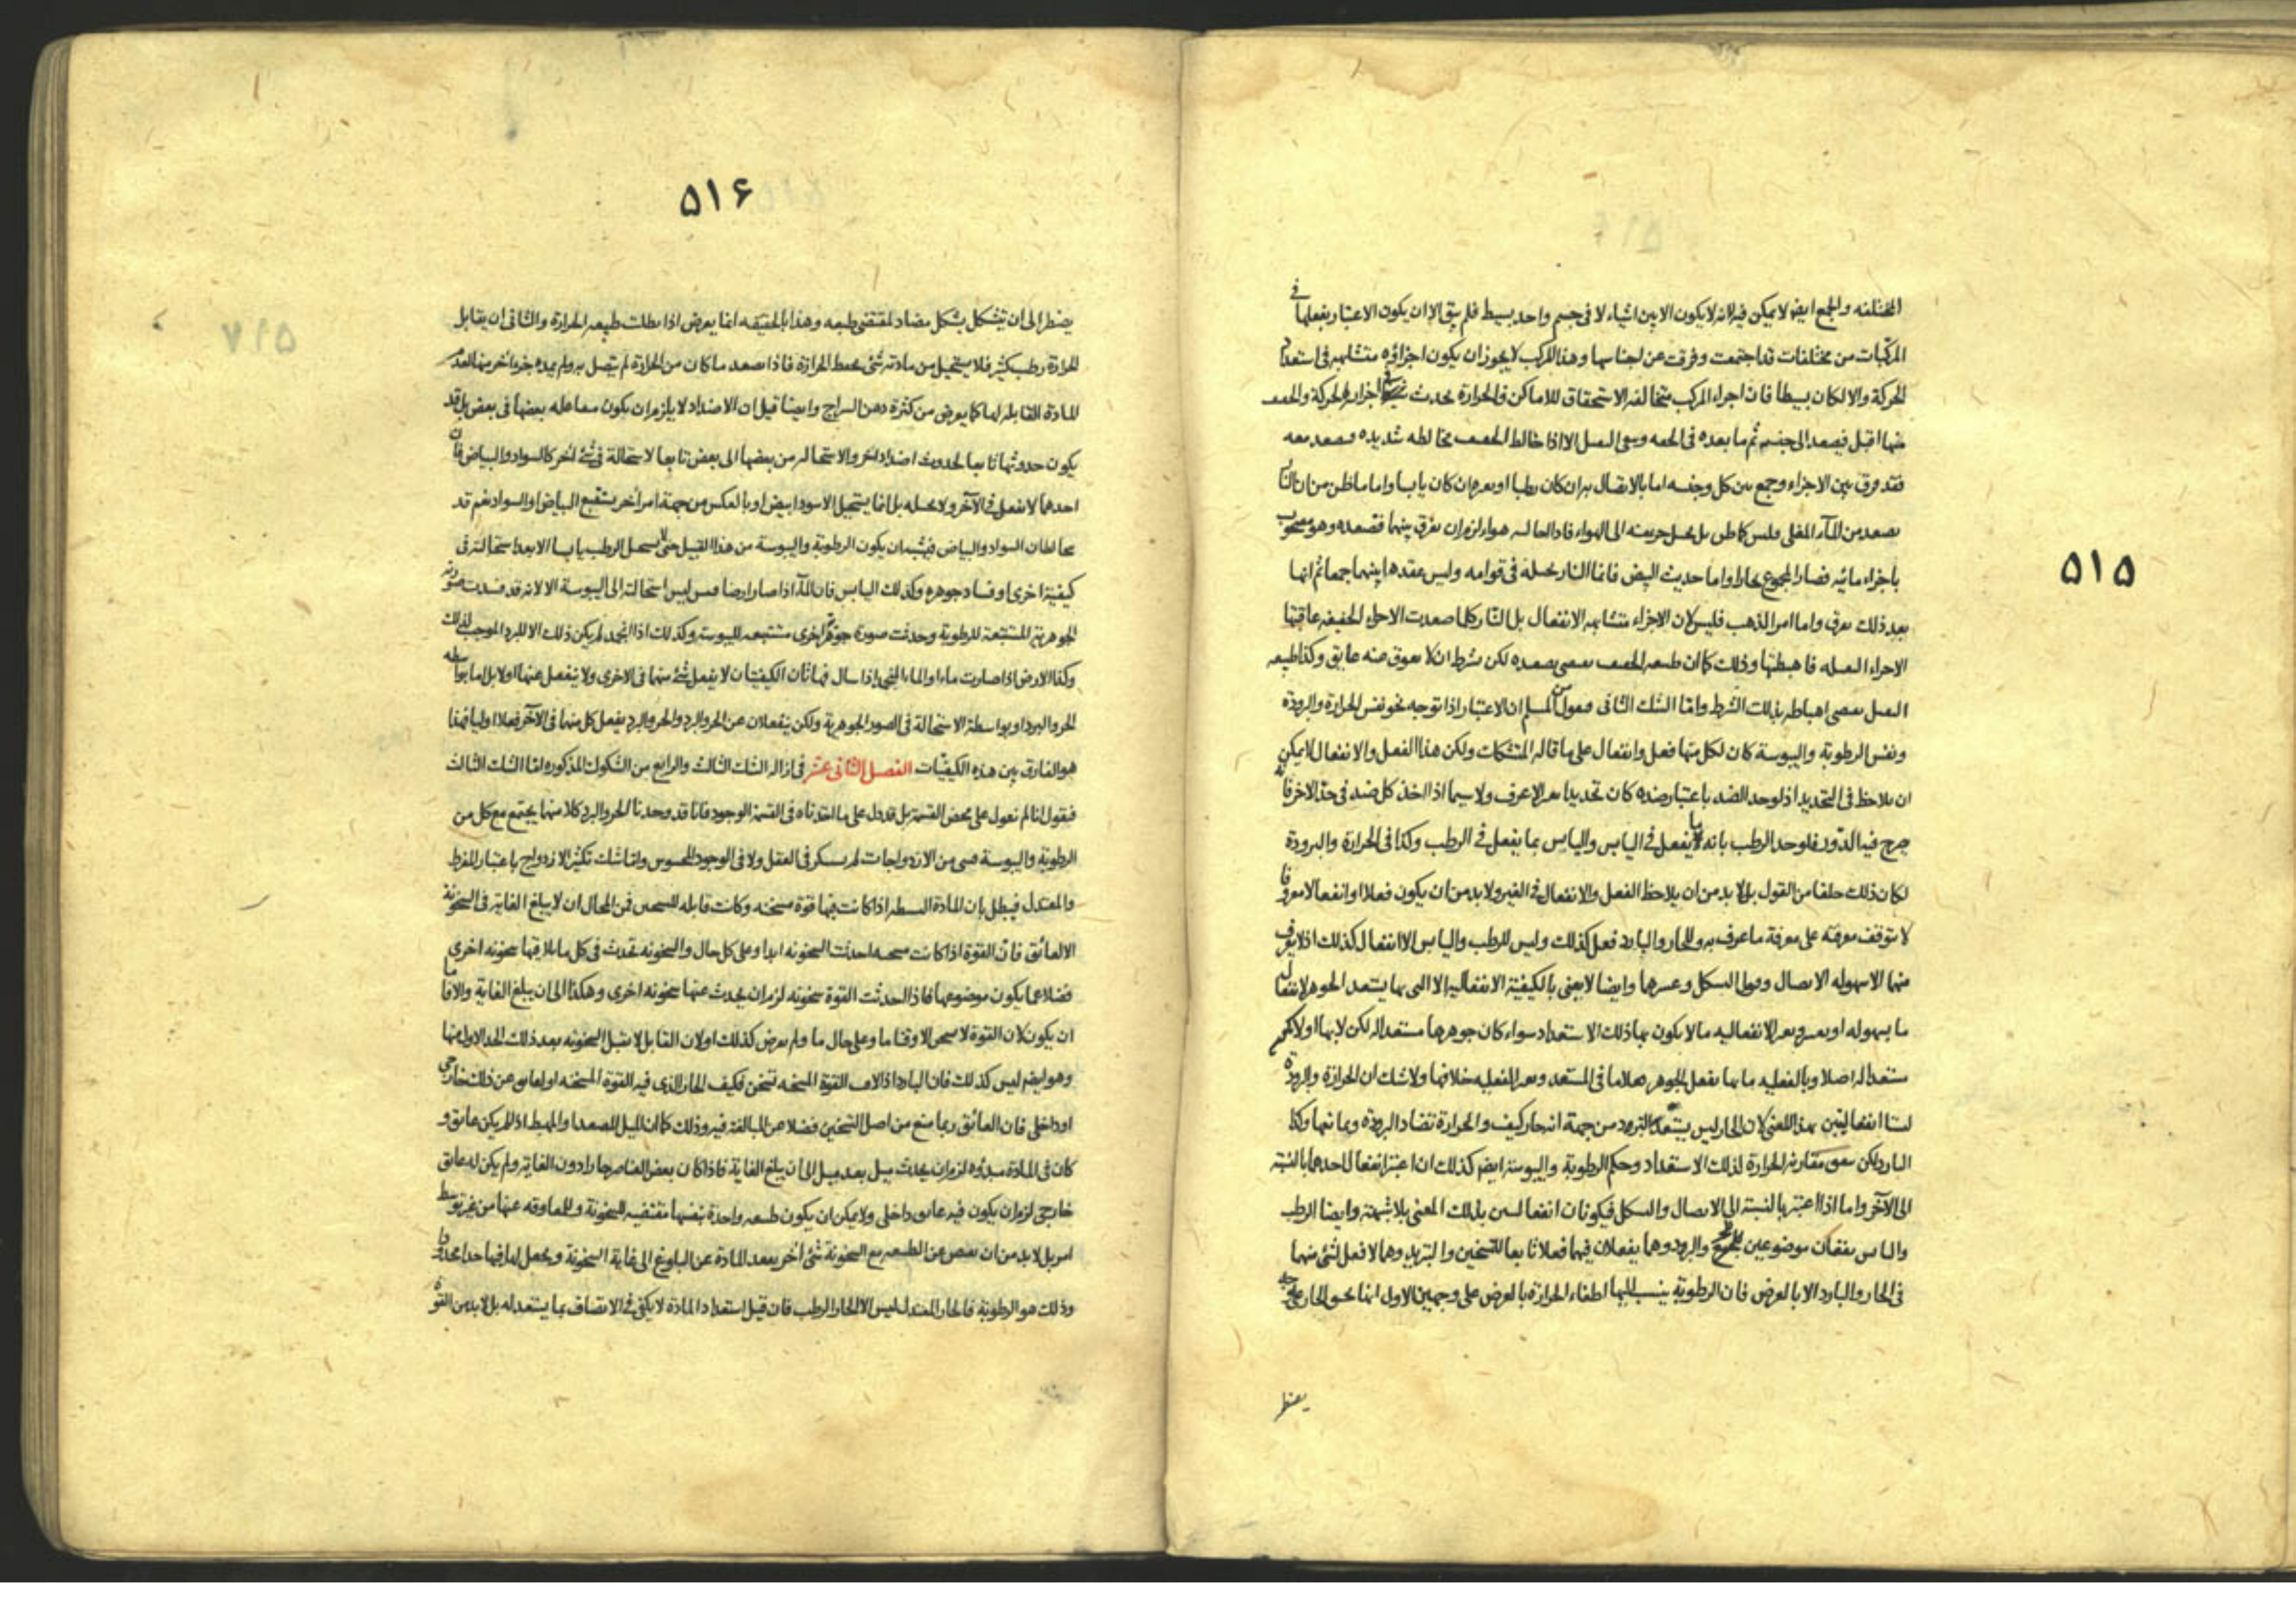 ٥١٥
المختلفه والجمع ايض لا يمكن فيه لانه لا يكون الا بين اشياء لا فى جسم واحد بسيط فلم يبق الا ان يكون الاعتبار بفعلها فى
المركبات من مختلفات قد اجتمعت وفرقت عن اجناسها وهذا المركب لا يجوز ان يكون اجزاؤه متشابهه فى استعداد
الحركة والا لكان بسيطا فان اجزاء المركب متخالفه الاستحقاق للاماكن والحرارة تحدث فى اجزائه الحركة والخفيف
منها اقبل فيصعد الى جنسه ثم ما بعده فى الخفه وسقى الثقيل الا اذا خالط الخفيف مخالطه شديده فيصعد معه
فقد فرق بين الاجزاء وجمع بين كل وجنسه اما بالاتصال به ان كان رطبا او بغيره ان كان يابسا واما ما ظن من ان النار
يصعد من الماء المغلى فليس كما ظن بل يحيل جزء منه الى الهواء فاذا احاله هواء لزم ان يفرق بينهما فيصعده وهو مصحوب
باجزاء مائيه فصار المجموع بخارا واما حديث البيض فانما النار تحيله فى قوامه وليس عقدها بينهما جمعا ثم انها
بعد ذلك تفرق واما امر الذهب فليس لان الاجزاء متشابهه الانفعال بل النار كلما صعدت الاجزاء الخفيفه عاقتها
الاجزاء الثقيله فاهبطتها وذلك كما ان طبيعه الخفيف يقتضى تصعيده لكن بشرط ان لا يعوق عنه عايق وكذا طبيعه
الثقيل يقتضى اهباطه بذلك الشرط واما الشك الثانى فنقول من المسلم ان الاعتبار اذا توجه نحو نفس الحرارة والبرودة
ونفس الرطوبة واليبوسة كان لكل منها فعل وانفعال على ما قاله المتشكك ولكن هذا الفعل والانفعال لا يمكن
ان يلاحظ فى التحديد اذ لو حد الضد باعتبار ضده كان تحديدا بغير الاعرف ولا سيما اذا اخذ كل ضد فى حد الاخر فانه
يرجع فيه الدور فلو حد الرطب بانه ما يفعل فى اليابس واليابس بما يفعل فى الرطب وكذا فى الحرارة والبرودة
لكان ذلك خلفا من القول بل لا بد من ان يلاحظ الفعل والانفعال فى الغير ولا بد من ان يكون فعلا او انفعالا معروفا
لا يتوقف معرفته على معرفة ما عرف به وللحار والبارد فعل كذلك وليس للرطب واليابس الا انفعال كذلك اذ لا يعرف
منهما الا سهوله الاتصال وقبول الشكل وعسرها وايضا لا يعنى بالكيفية الانفعاليه الا التى بها يستعد الجوهر لانفعال
ما بسهوله او بعسر وبغير الانفعاليه ما لا يكون بها ذلك الاستعداد سواء كان جوهرها مستعدا له لكن لا بها او لا يكون
مستعدا له اصلا وبالفعليه ما بها يفعل الجوهر فعلا ما فى المستعد وبغير الفعليه خلافها ولا شك ان الحرارة والبرودة
ليستا انفعاليتين بهذا المعنى لان الحار ليس يستعد للتبرد من جهة انه حار كيف والحرارة تضاد البرودة وتمانعها وكذا
البارد لكن يعوق مقارنة الحرارة لذلك الاستعداد وحكم الرطوبة واليبوسة ايضا كذلك ان اعتبر انفعال احدهما بالنسبة
الى الآخر واما اذا اعتبر بالنسبة الى الاتصال والشكل فيكونان انفعاليتين بذلك المعنى بلا شبهة وايضا الرطب
واليابس يقعان موضوعين للحر والبرد وهما يفعلان فيهما فعلا تابعا للتسخين والتبريد وهما لا فعل لشئ منهما
فى الحار والبارد الا بالعرض فان الرطوبة ينسب اليها اطفاء الحرارة بالعرض على وجهين الاول انها تخنق الحار على جهة
يضطر
٥١۶
يضطر الى ان يتشكل بشكل مضاد لمقتضى طبعه وهذا بالحقيقه انما يعرض اذا بطلت طبيعه الحرارة والثانى ان يقابل
الحرارة رطب كثير فلا يستحيل من مادته شئ يحفظ الحرارة فاذا صعد ما كان من الحرارة لم يتصل به ولم يمده جزء اخر منها لعدم
المادة القابله لها كما يعرض من كثرة دهن السراج وايضا قيل ان الاضداد لا يلزم ان يكون مفاعله بعضها فى بعض بل قد
يكون حدوثها تابعا لحدوث اضداد اخر والاستحاله من بعضها الى بعض تابعا لاستحالة فى شئ اخر كالسواد والبياض فان
احدهما لا يفعل فى الآخر ولا يحيله بل انما يستحيل الاسود ابيض او بالعكس من جهة امر اخر يستتبع البياض او السواد نعم قد
يخالطان السواد والبياض فيشبه ان يكون الرطوبة واليبوسة من هذا القبيل حتى لا يستحيل الرطب يابسا الا بعد استحالته فى
كيفية اخرى او فساد جوهره وكذلك اليابس فان الماء اذا صار ارضا فيبس ليس استحالته الى اليبوسة الا لانه قد فسدت صورته
الجوهرية المستتبعة للرطوبة وحدثت صورة جوهرية اخرى مستتبعه لليبوسة وكذلك اذا انجمد لم يكن ذلك الا للبرد الموجب لذلك
وكذا الارض اذا صارت ماء او الماء الجمد اذا سال فهاتان الكيفيتان لا يفعل شئ منهما فى الاخرى ولا ينفعل عنها اولا بل اما بواسطه
الحر والبرد او بواسطة الاستحالة فى الصور الجوهرية ولكن ينفعلان عن الحر والبرد والحر والبرد يفعل كل منهما فى الآخر فعلا اوليا فهذا
هو الفارق بين هذه الكيفيات الفصل الثانى عشر فى ازاله الشك الثالث والرابع من الشكوك المذكوره اما الشك الثالث
فنقول انا لم نعول على محض القسمة بل قد دل على ما اخذناه فى القسمة الوجود فانا قد وجدنا الحر والبرد كلا منهما يجتمع مع كل من
الرطوبة واليبوسة فبقى من الازدواجات لم ينكر فى العقل ولا فى الوجود المحسوس واما شك تكثير الازدواج باعتبار المفرط
والمعتدل فيبطل بان المادة البسيطه اذا كانت فيها قوة مسخنه وكانت قابله للتسخين فمن المحال ان لا يبلغ الغاية فى السخونة
الا لعائق فان القوة اذا كانت مسخنه احدثت السخونه ابدا وعلى كل حال والسخونه تحدث فى كل ما يلاقيها سخونه اخرى
فضلا عما يكون موضوعها فاذا احدثت القوة سخونه لزم ان يحدث عنها سخونه اخرى وهكذا الى ان يبلغ الغاية والا فاما
ان يكون لان القوة لا تسخن الا وقتا ما وعلى حال ما ولم يعرض كذلك او لان القابل لا يقبل السخونه بعد ذلك الحد الاول منها
وهو ايضا ليس كذلك فان البارد اذا لاقت القوة المسخنه تسخن فكيف الحار الذى فيه القوة المسخنه او لعايق عن ذلك خارجى
او داخلى فان العائق ربما منع من اصل التسخين فضلا عن المبالغة فيه وذلك كما ان الميل للصعد او المهبط اذا لم يكن عايق و
كان فى المادة مبدؤه لزم ان يحدث ميل بعد ميل الى ان يبلغ الغاية فاذا كان بعض العناصر حارا دون الغاية ولم يكن له عايق
خارجى لزم ان يكون فيه عايق داخلى ولا يمكن ان يكون طبيعه واحدة بنفسها مقتضيه السخونة وللمعاوقه عنها من غير توسط
امر بل لا بد من ان يفيض عن الطبيعه مع السخونة شئ اخر يبعد المادة عن البلوغ الى غاية السخونة ويجعل لها فيها حدا محدودا
وذلك هو الرطوبة فالحار المعتدل ليس الا الحار الرطب فان قيل استعداد المادة لا يكفى فى الاتصاف بما يستعد له بل لا بد من القوة